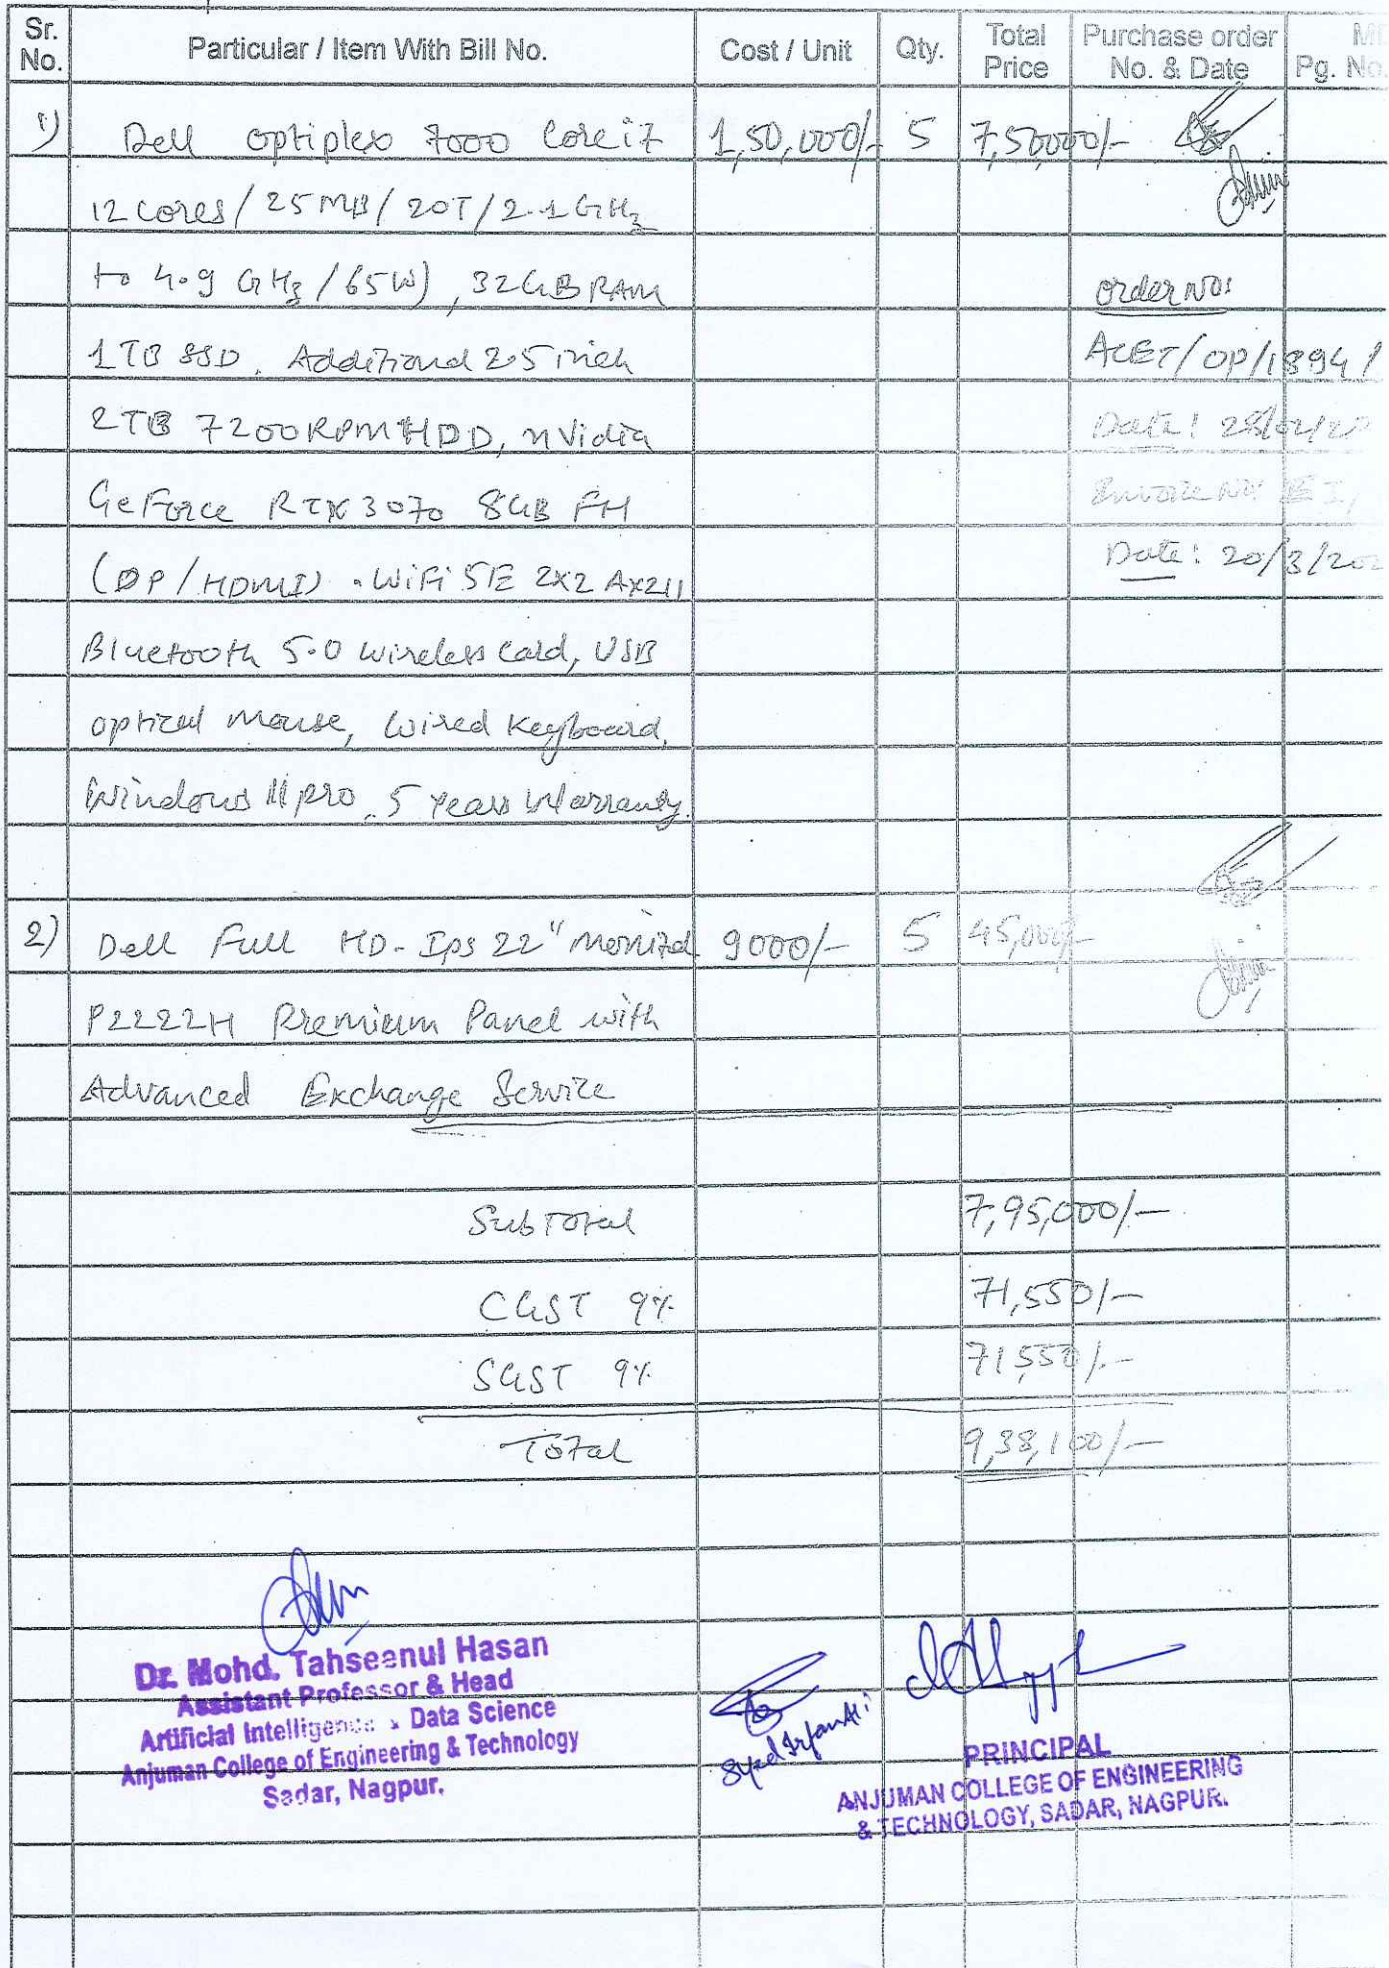 Sr. No. Particular / Item With Bill No. Cost / Unit Qty. Total Price Purchase order No. & Date Pg. No.
1) Dell optiplex 7000 Core i7 1,50,000/- 5 7,50,000/-
12 cores / 25 MB / 20T / 2.1 GHz
to 4.9 GHz / 65W), 32GB RAM order No:
1 TB SSD, Additional 2.5 inch ACET/OP/1894/
2TB 7200RPM HDD, nVidia Date:
GeForce RTX 3070 8GB FH
(DP/HDMI) . WiFi 5E 2x2 Ax211 Date: 20/3/202
Bluetooth 5.0 wireless Card, USB
optical mouse, Wired Keyboard,
Windows 11 pro . 5 Years Warranty.
2) Dell Full HD-Ips 22" Monitor 9000/- 5 45,000/-
P2222H Premium Panel with
Advanced Exchange Service
Sub Total 7,95,000/-
CGST 9% 71,550/-
SGST 9% 71,550/-
Total 9,38,100/-
Dr. Mohd. Tahseenul Hasan
Assistant Professor & Head
Artificial Intelligence & Data Science
Anjuman College of Engineering & Technology
Sadar, Nagpur.
Syed Irfan Ali
PRINCIPAL
ANJUMAN COLLEGE OF ENGINEERING
& TECHNOLOGY, SADAR, NAGPUR.